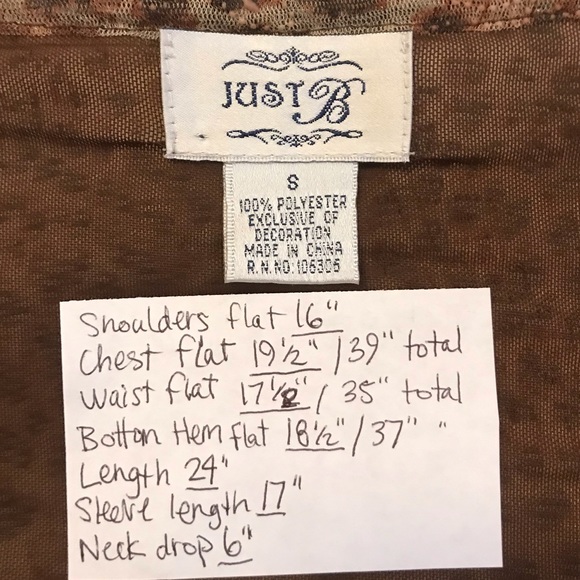 JUST B
S
100% POLYESTER
EXCLUSIVE OF
DECORATION
MADE IN CHINA
R.N.NO:106306
Shoulders flat 16"
Chest flat 19½" / 39" total
Waist flat 17½" / 35" total
Bottom Hem flat 18½" / 37" "
Length 24"
Sleeve length 17"
Neck drop 6"